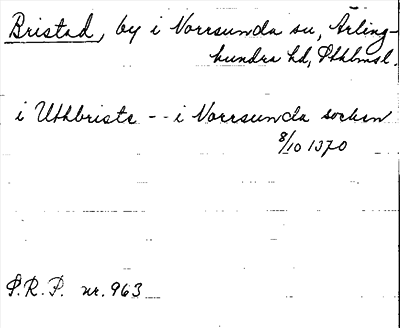 Bristad, by i Norrsunda sn, Ärling-
hundra hd, Sthlmsl.
i Uthbristc -- i Norrsunda sochn
8/10 1370
S.R.P. nr. 963